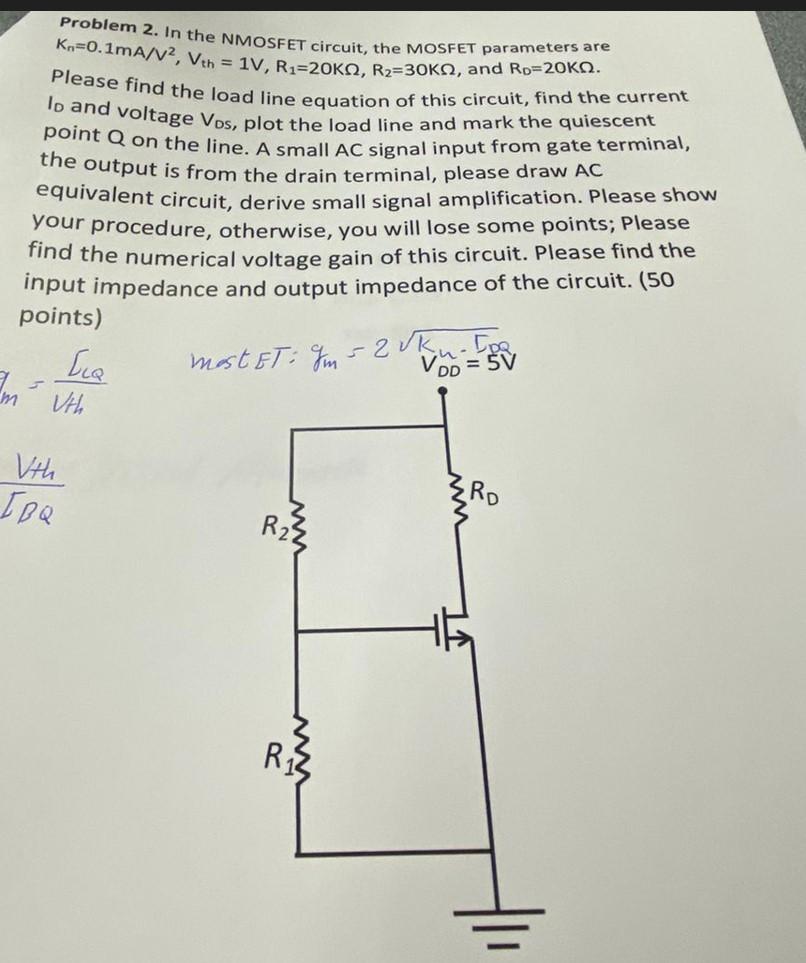 Problem 2. In the NMOSFET circuit, the MOSFET parameters are
Kn=0.1mA/V², Vth = 1V, R1=20KΩ, R2=30KΩ, and RD=20KΩ.
Please find the load line equation of this circuit, find the current
ID and voltage VDS, plot the load line and mark the quiescent
point Q on the line. A small AC signal input from gate terminal,
the output is from the drain terminal, please draw AC
equivalent circuit, derive small signal amplification. Please show
your procedure, otherwise, you will lose some points; Please
find the numerical voltage gain of this circuit. Please find the
input impedance and output impedance of the circuit. (50
points)
mosfET: gm = 2 √Kn · IDQ
gm = ICQ / Vth
VDD = 5V
Vth / IBQ
RD
R2
R1